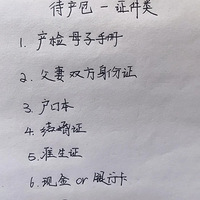 待产包 - 证件类
1. 产检母子手册
2. 父妻双方身份证
3. 户口本
4. 结婚证
5. 准生证
6. 现金 or 银行卡